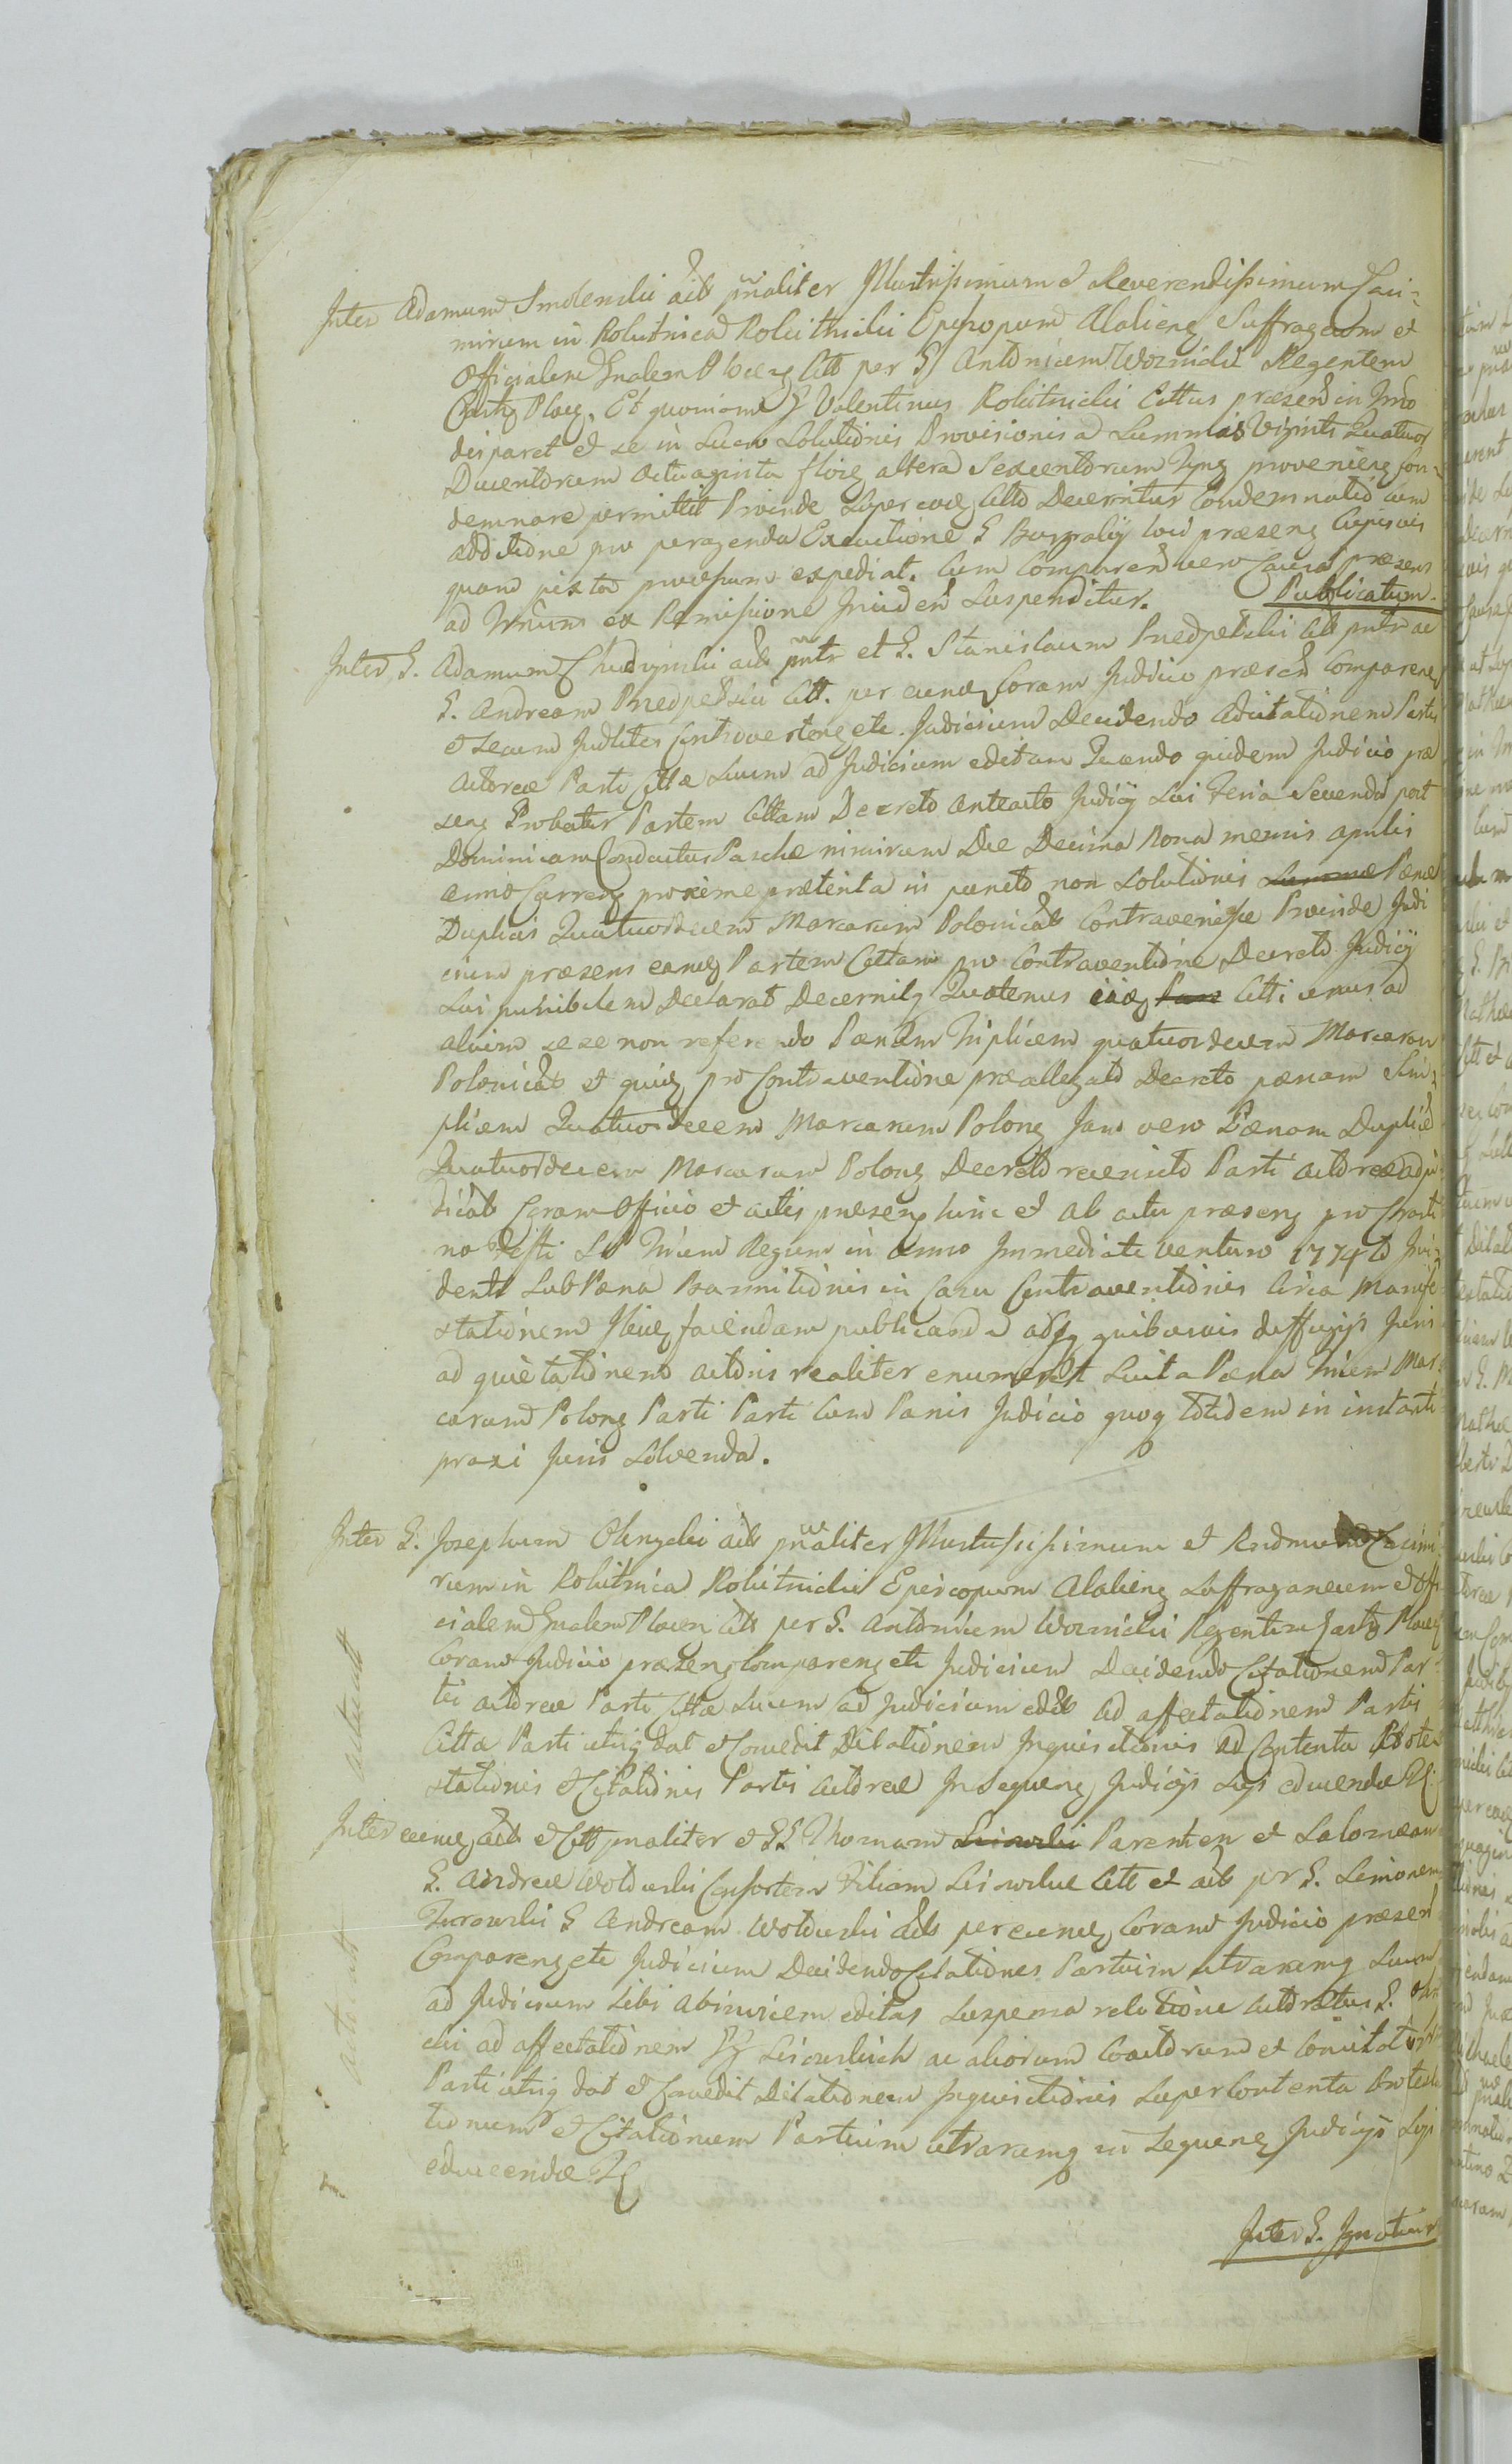 Inter Adamum Smolenski act pnaliter Illustrissimum et Reverendissimum Casi-
mirum in Rokitnica Rokitnicki Episcopum Alaliens Suffraganeum et
Officialem Gnalem Plocens Citt per G Antonium Woznicki Regentem
Castr Ploc. Et quoniam G Valentinus Rokitnicki Cittus præsen in Imo
disparet et se in Lucro Solutionis Provisionis a Summas Viginti Quatuor
Ducentorum octuaginta floren altera Sexcentorum Tynf provenien Con-
demnare permittit Proinde super eoque Citto Decernitur Condemnatio cum
additione pro peragenda Executione G Burgrabij loci præsens cujusvis
quam juxta processum expediat. Cum Comparen vero Causa præsens
ad Imum ex Remissione Inciden Suspenditur. Publicatum
Inter G. Adamum Chudzynski act pntr et G. Stanislaum Przedpelski Citt pntr ac
G. Andream Przedpelski Citt. per eund Coram Judicio præsen Comparens
et secum Judliter Controvertens etc. Judicium Decidendo Citationem Partis
Actoreæ Parti Cittæ Suum ad Judicium editam Quando quidem Judicio præ
sens Probatur Partem Cittam Decreto anteacto Judicij Sui Feria Secunda post
Dominicam Conductus Paschæ nimirum Die Decima Nona mensis Aprilis
anno Curren proxime præterita in puncto non Solutionis Summæ Pænæ
Duplicis Quatuordecem Marcarum Polonical Contravenisse Proinde Judi
cium præsens eamq Partem Cittam pro Contraventione Decreto Judicij
Sui punibilem Declarat Decernitq Quatenus iidq Citti unus ad
alium sese non referendo Pænam Triplicem quatuordecem Marcarum
Polonical et quiq pro Contraventione præallegato Decreto pænam Sim-
plicem Quatuordecem Marcarum Polon Jam vero Pænam Duplicem
Quatuordecem Marcarum Polon Decreto recenito Parti actoreæ adju
dicat Coram Officio et actis præsens hinc et ab actu præsens pro Crasti
no Festi SS Trium Regum in anno Immediate venturo 1774to Inci-
denti Sub Pæna Bannitionis in Casu Contraventionis Circa Manife
stationem faciendam publicanda absq quibusvis diffugijs Juris
ad quietationem actoris realiter enumerent Luita Pæna Trium Mar-
carum Polon Parti Parti Cum Panis Judicio quoq totidem in instanti
praxi Juris Solvenda.
Inter G. Josephum Olszycki act pnaliter Illustrissimum et Rndmum Casimi
rum in Rokitnica Rokitnicki Episcopum Alaliens Suffraganeum et Offi
cialem Gnalem Plocen Citt per G. Antonium Woznicki Regentem Castr Plocens
Coram Judicio præsens Comparens etc Judicium Decidendo Citationem Par-
tis actoreæ Parti Cittæ Suum ad Judicium edit ad affectationem Partis
Cittæ Parti utriq dat et Concedit Dilationem Inquisitionis ad Contenta Prote
stationis et Citationis Partis actoreæ In Sequens Judicijs Suis educendæ
Inter eund act et Citt pnaliter et GG Thomam Parentem et Salomeam
G. Andreæ Woldowski Consortem Filiam Citt et act pr G. Simonem
Turowski G Andream Woldowski act per eund Coram Judicio præsen
Comparens etc Judicium Decidendo Citationes Partium utrarumq Suum
ad Judicium Sibi abinvicem editas Suspensa relatione actoratus G.
cki ad affectationem ac aliorum Coactorum et Concitatorum
Parti utriq dat et Concedit Dilationem Inquisitionis Super Contenta Protesta
tionum et Citationum Partium utrarumq in Sequens Judicijs Suis
educendæ
Inter G. Ignatium